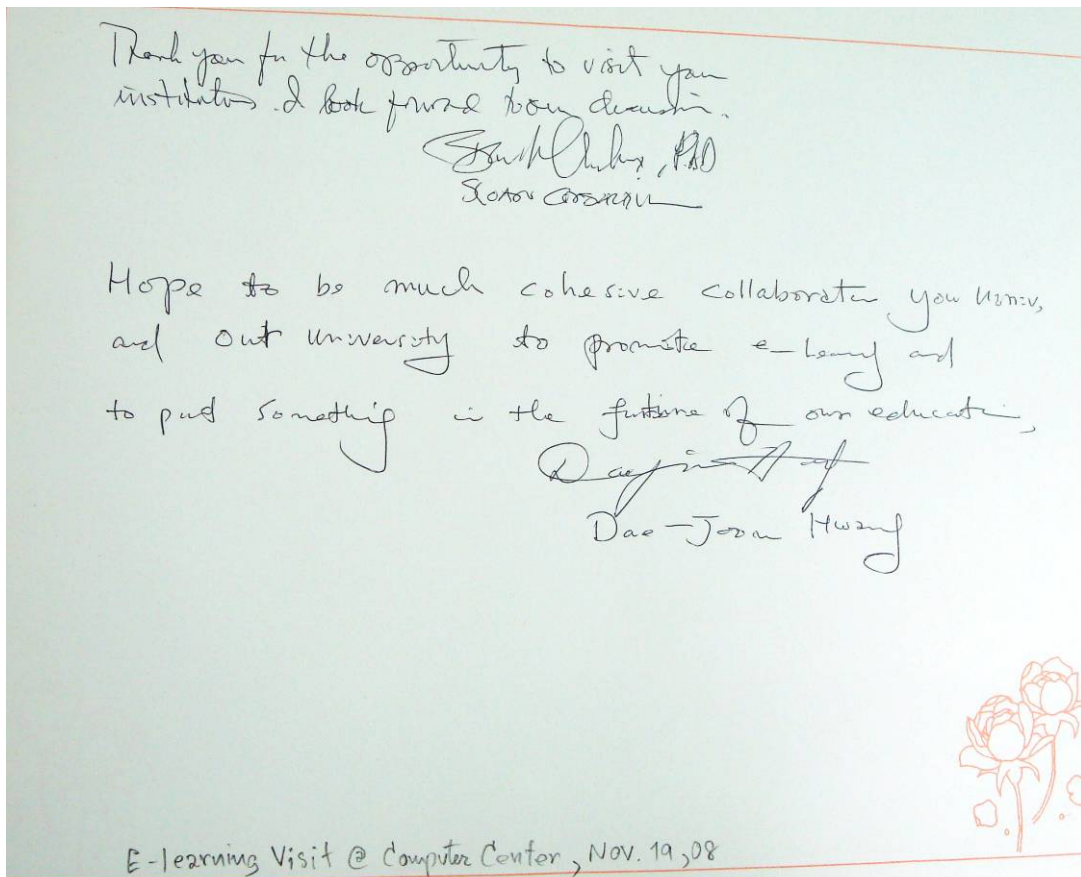 Thank you for the opportunity to visit your
institution. I look forward to our discussion.
, PhD
Sloan Consortium
Hope to be much cohesive collaboration you Univ,
and out university to promote e-learning and
to put something in the future of our education,
Dae-Joon Hwang
E-learning Visit @ Computer Center, Nov. 19, 08